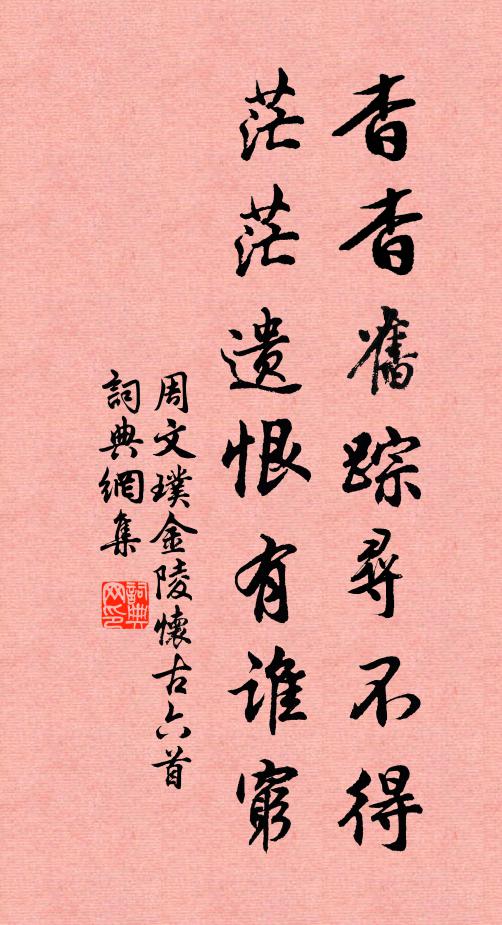 杳杳舊踪尋不得
茫茫遺恨有誰窮
周文璞金陵懷古六首
詞典網集
詞典網印